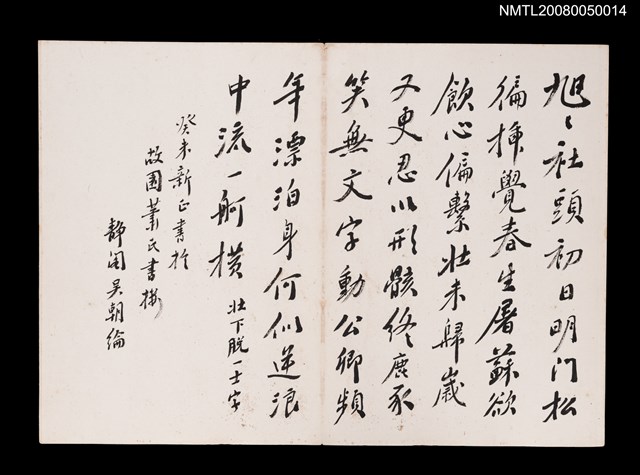 NMTL20080050014
旭〻社頭初日明門松
徧插覺春生屠蘇欲
飲心偏繫壯未歸歲
又更忍以形骸終鹿豕
笑無文字動公卿頻
年漂泊身何似逆浪
中流一舸橫 壯下脫一士字
癸未新正書於
故園氏書樓
靜閣吳朝綸